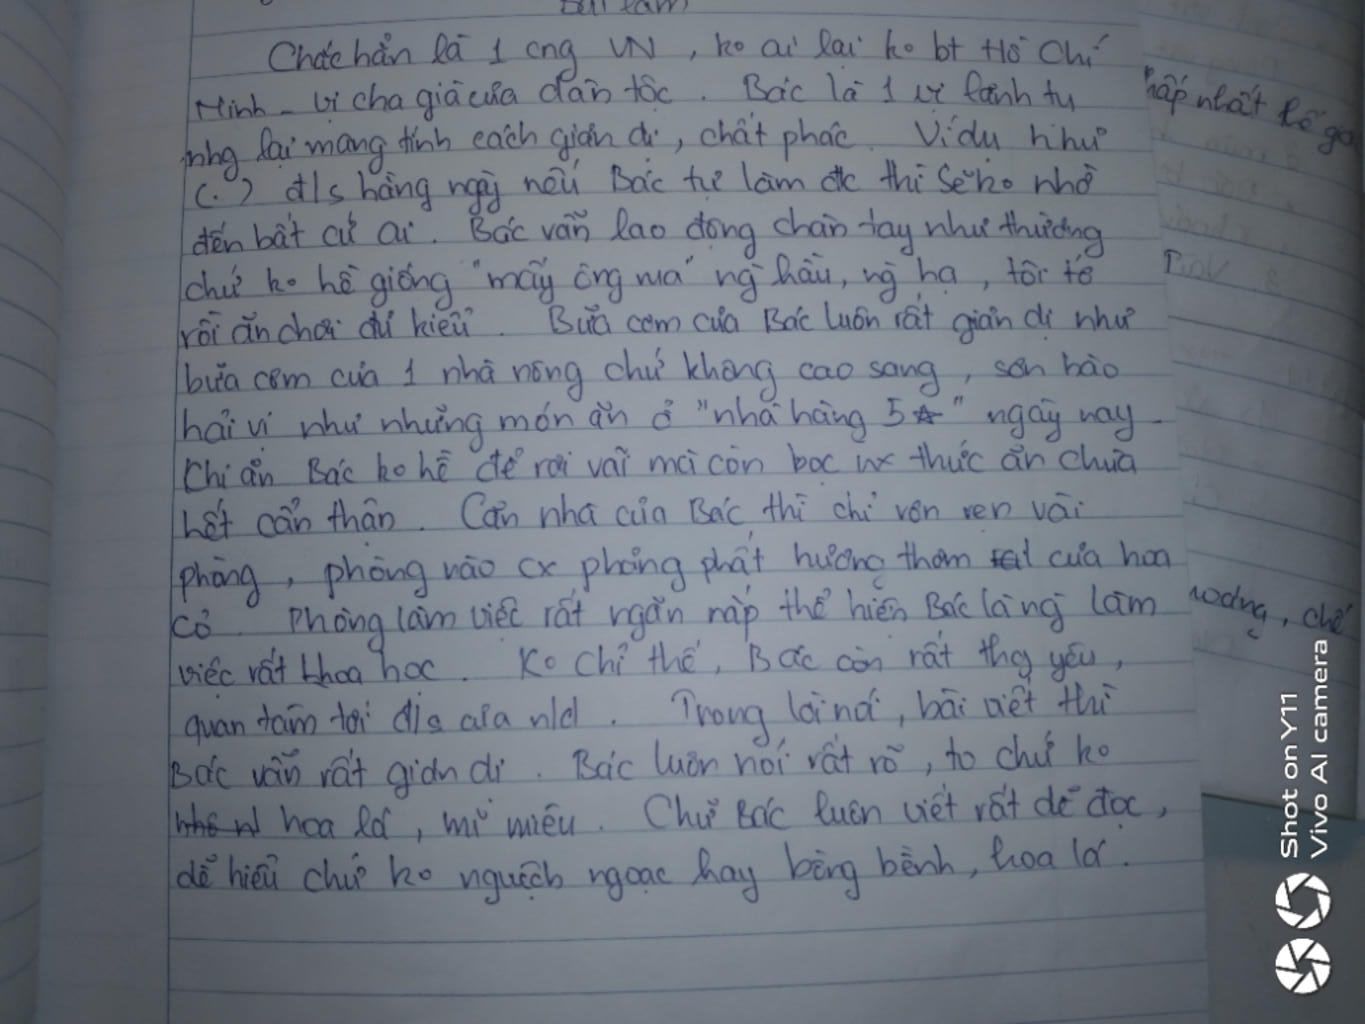 Bài làm
Chắc hẳn là 1 cng VN, ko ai lại ko bt Hồ Chí
Minh - vị cha già của dân tộc. Bác là 1 vị lãnh tụ
nhg lại mang tính cách giản dị, chất phác. Ví dụ như
(.) đ/s hằng ngày nếu Bác tự làm đc thì sẽ ko nhờ
đến bất cứ ai. Bác vẫn lao động chân tay như thường
chứ ko hề giống "mấy ông vua" ng hầu, ng hạ, tôi tớ
rồi ăn chơi đủ kiểu. Bữa cơm của Bác luôn rất giản dị như
bữa cơm của 1 nhà nông chứ không cao sang, sơn hào
hải vị như những món ăn ở "nhà hàng 5☆" ngày nay.
Khi ăn Bác ko hề để rơi vãi mà còn bọc thức ăn chưa
hết cẩn thận. Căn nhà của Bác thì chỉ vỏn vẹn vài
phòng, phòng nào cx phảng phất hương thơm của hoa
cỏ. Phòng làm việc rất ngăn nắp thể hiện Bác là ng làm
việc rất khoa học. Ko chỉ thế, Bác còn rất thg yêu,
quan tâm tới đ/s của nld. Trong lời nói, bài viết thì
Bác vẫn rất giản dị. Bác luôn nói rất rõ, to chứ ko
hoa lá, mĩ miều. Chữ Bác luôn viết rất dễ đọc,
dễ hiểu chứ ko nguệch ngoạc hay bềng bềnh, hoa lá.
hấp nhất kể
chế
Shot on Y11
Vivo AI camera